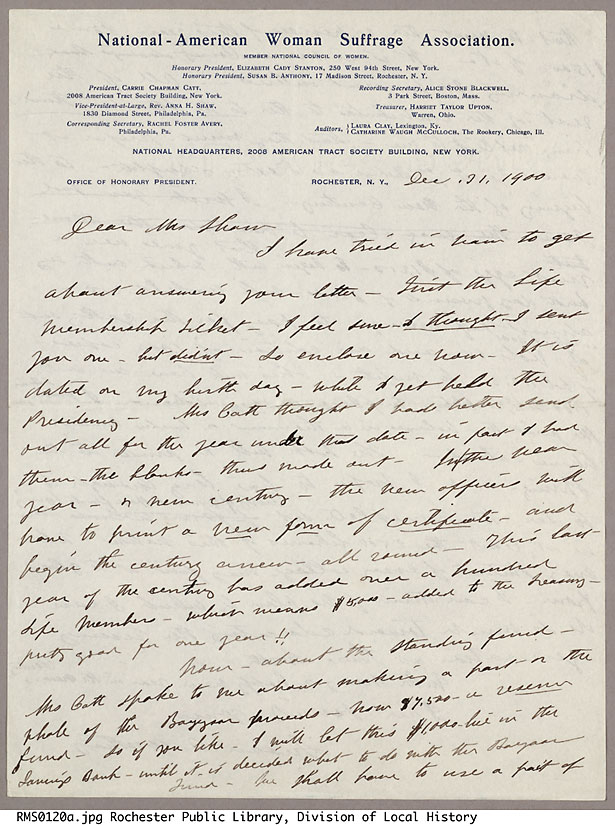 National-American Woman Suffrage Association.
MEMBER NATIONAL COUNCIL OF WOMEN.
Honorary President, ELIZABETH CADY STANTON, 250 West 94th Street, New York.
Honorary President, SUSAN B. ANTHONY, 17 Madison Street, Rochester, N. Y.
President, CARRIE CHAPMAN CATT,
2008 American Tract Society Building, New York.
Vice-President-at-Large, REV. ANNA H. SHAW,
1830 Diamond Street, Philadelphia, Pa.
Corresponding Secretary, RACHEL FOSTER AVERY,
Philadelphia, Pa.
Recording Secretary, ALICE STONE BLACKWELL,
3 Park Street, Boston, Mass.
Treasurer, HARRIET TAYLOR UPTON,
Warren, Ohio.
Auditors, } LAURA CLAY, Lexington, Ky.
CATHARINE WAUGH MCCULLOCH, The Rookery, Chicago, Ill.
NATIONAL HEADQUARTERS, 2008 AMERICAN TRACT SOCIETY BUILDING, NEW YORK.
OFFICE OF HONORARY PRESIDENT.
ROCHESTER, N. Y., Dec. 31, 1900
Dear Mrs Shaw
I have tried in vain to get
about answering your letter - first the Life
membership ticket - I feel sure - I thought - I sent
you one - but didn't - So enclose one now - It is
dated on my birth day - while I yet held the
Presidency - Mrs Catt thought I had better send
out all for the year under that date - in fact I had
them - the blanks - thus made out - In the new
year - or new century - the new officers will
have to print a new form of certificate - and
begin the century anew - all round - This last
year of the century has added over a hundred
Life Members - which means $5000 - added to the treasury -
pretty good for one year!!
Now - about the standing fund -
Mrs Catt spoke to me about making a part or the
whole of the Bazaar proceeds - now $7,500 - a reserve
fund - So if you like - I will let this $1,000 lie in the
Savings Bank - until it is decided what to do with the Bazaar
fund - We shall have to use a part of
RMS0120a.jpg Rochester Public Library, Division of Local History